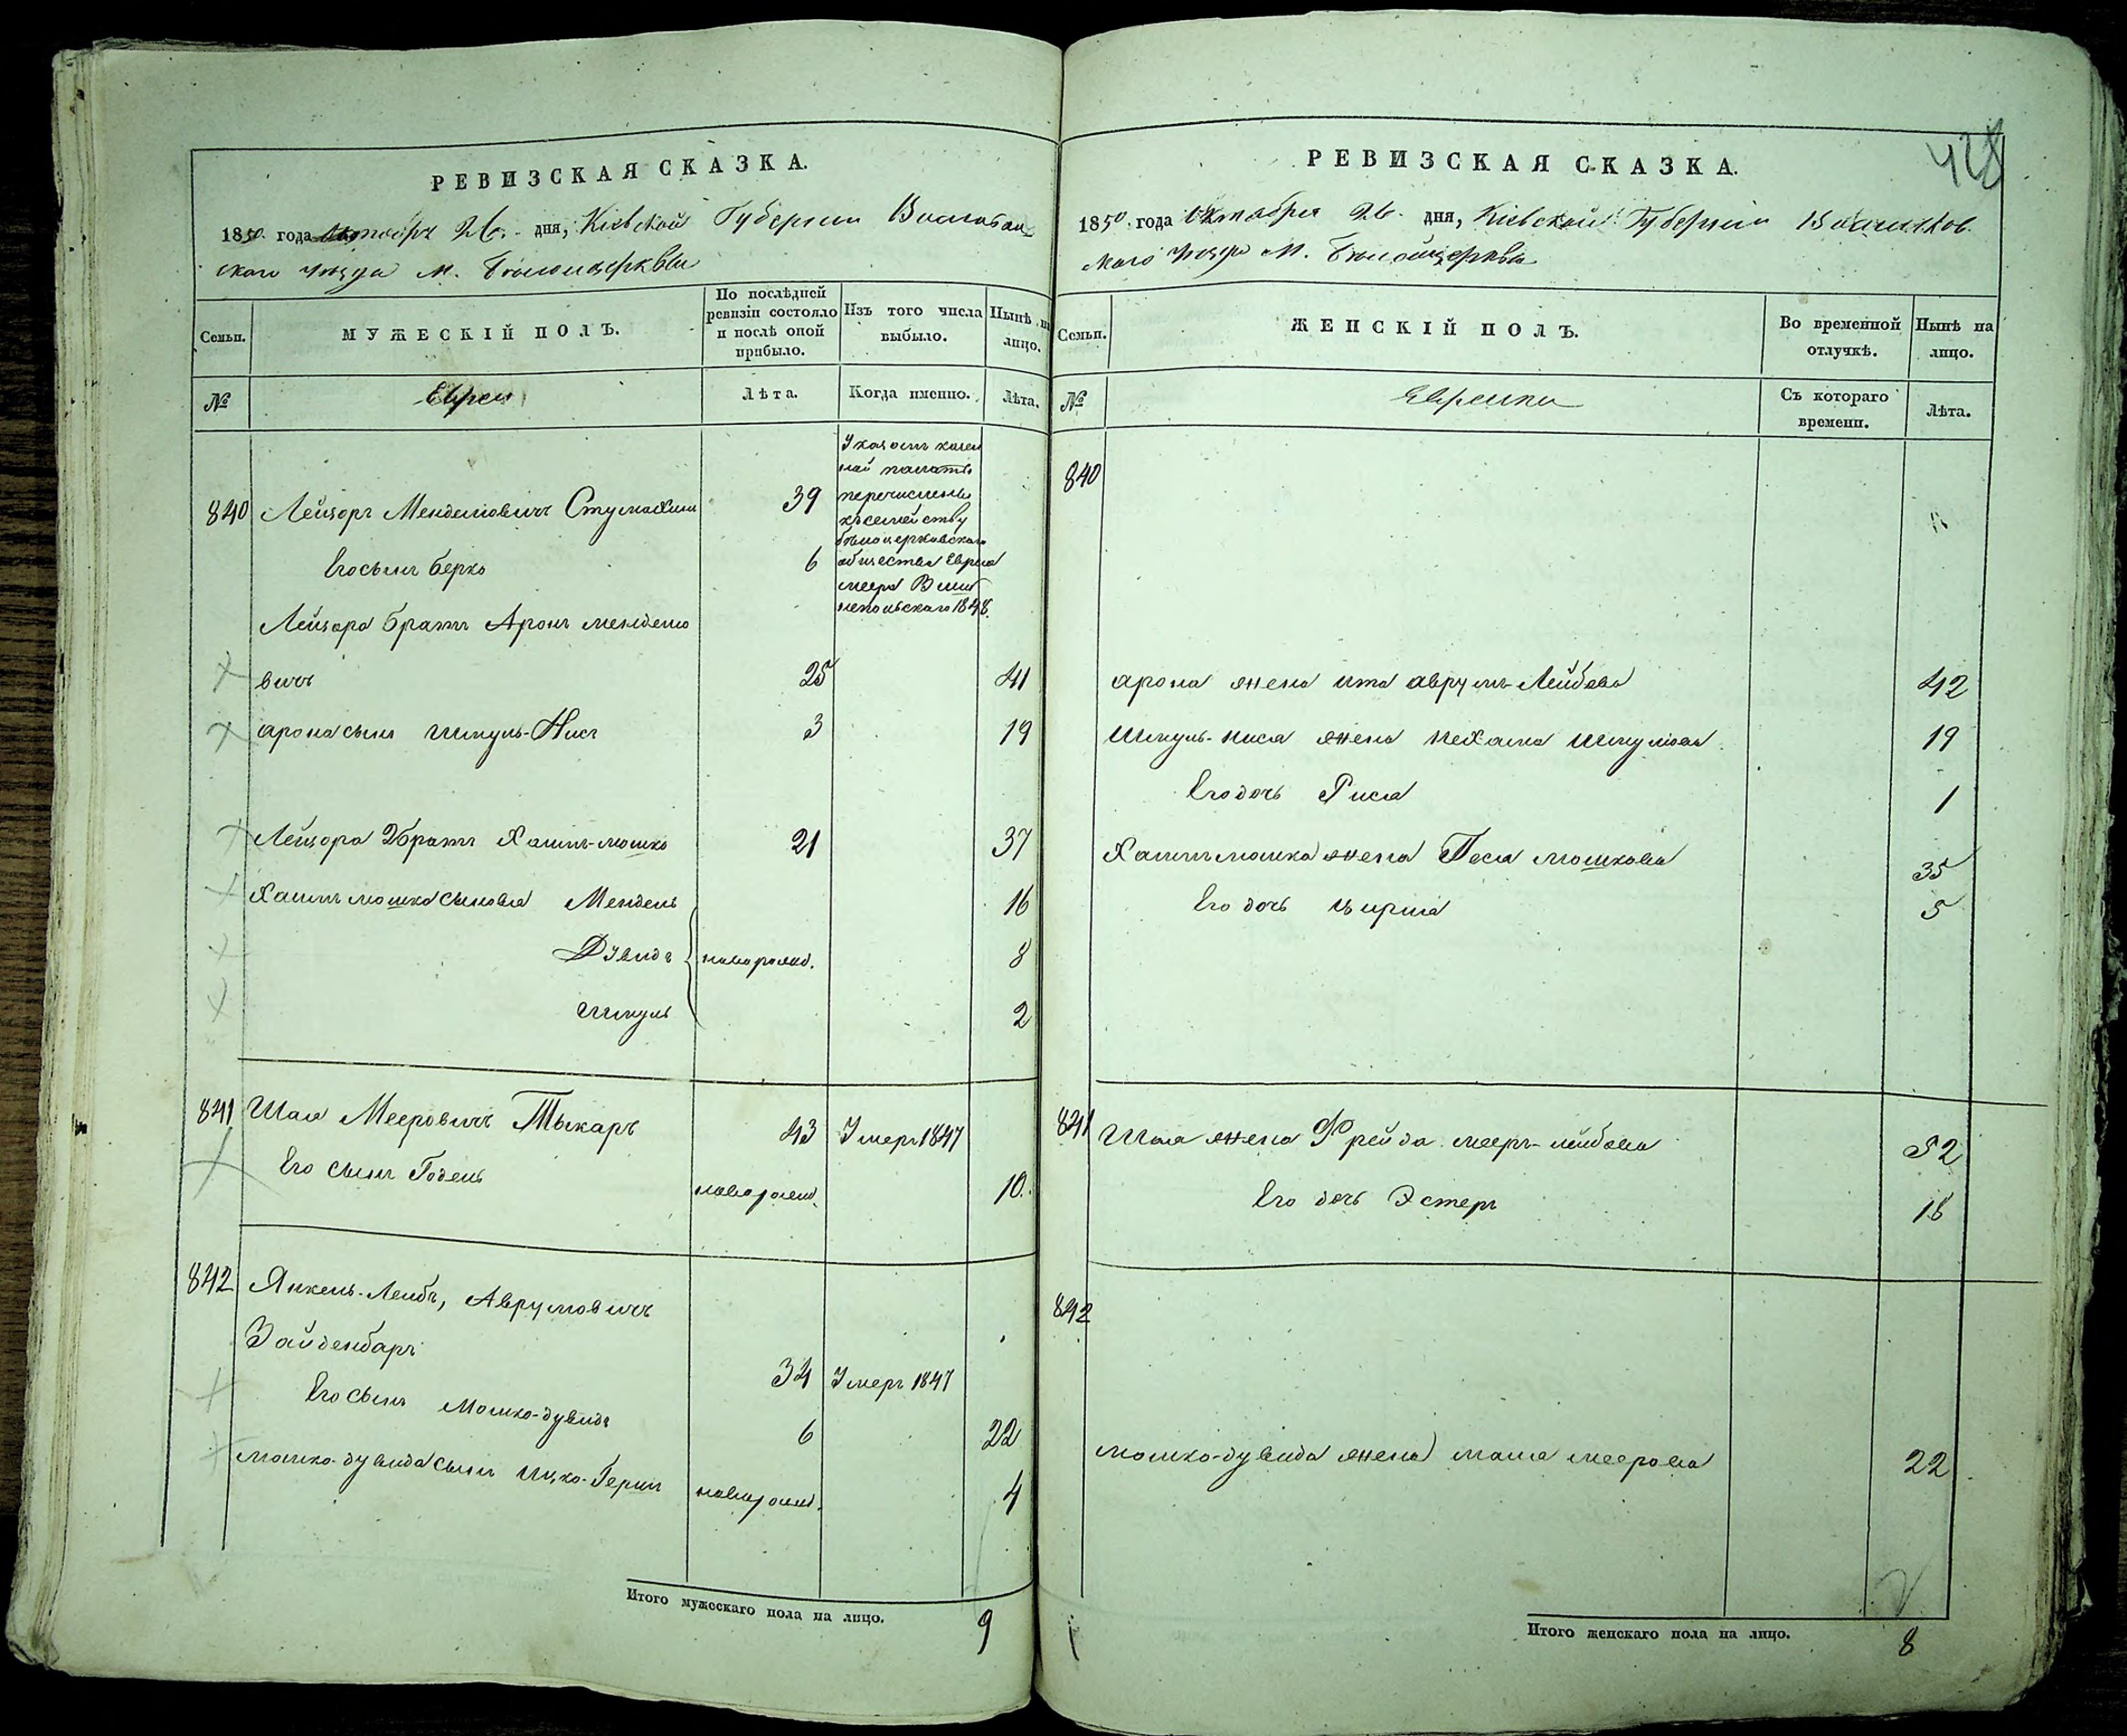 РЕВИЗСКАЯ СКАЗКА.
1850 года Октября 26. дня, Кіевской Губерніи Васильков
скаго уѣзда М. Бѣлойцеркви
Семьи.
МУЖЕСКІЙ ПОЛЪ.
По послѣдней
ревизіи состояло
и послѣ оной
прибыло.
Изъ того числа
выбыло.
Нынѣ на
лицо.
№
Евреи
Лѣта.
Когда именно.
Лѣта.
840 Лейзоръ Менделовичъ 39
Его сынъ Берко 6
Указомъ казен
ной палаты
перечислены
къ семейству
бѣлоцерковскаго
общества Еврея
меера
1848.
Лейзора братъ Аронъ менделе
вичъ 25 41
арона сынъ Шмуль-Нисъ 3 19
Лейзора 2 братъ Хаимъ-мошко 21 37
Хаимъ мошка сыновья Мендель 16
Дувидъ новорожд. 8
Шмуль 2
841 Шая Мееровичъ Тыкаръ 43 Умеръ 1847
Его сынъ Годель новорожд. 10.
842 Янкель-Лейбъ, Аврумовичъ
Зайденбаръ 34 Умеръ 1847
Его сынъ Мошко-дувидъ 6 22
мошко-дувида сынъ Ицко-Герш новорожд. 4
Итого мужескаго пола на лицо. 9
428
РЕВИЗСКАЯ СКАЗКА.
1850 года Октября 26. дня, Кіевской Губерніи Васильков
скаго уѣзда М. Бѣлойцеркви
Семьи.
ЖЕНСКІЙ ПОЛЪ.
Во временной
отлучкѣ.
Нынѣ на
лицо.
№
Еврейки
Съ котораго
времени.
Лѣта.
840
арона жена ита аврумъ-Лейбова 42
Шмуль-ниса жена Нехама Шмулева 19
Его дочь Риса 1
Хаимъ мошка жена Песя мошкова 35
Его дочь Цирля 5
841 Шая жена Фрейда мееръ-лейбова 52
Его дочь Эстеръ 18
842
мошко-дувида жена маля меерова 22
Итого женскаго пола на лицо. 8